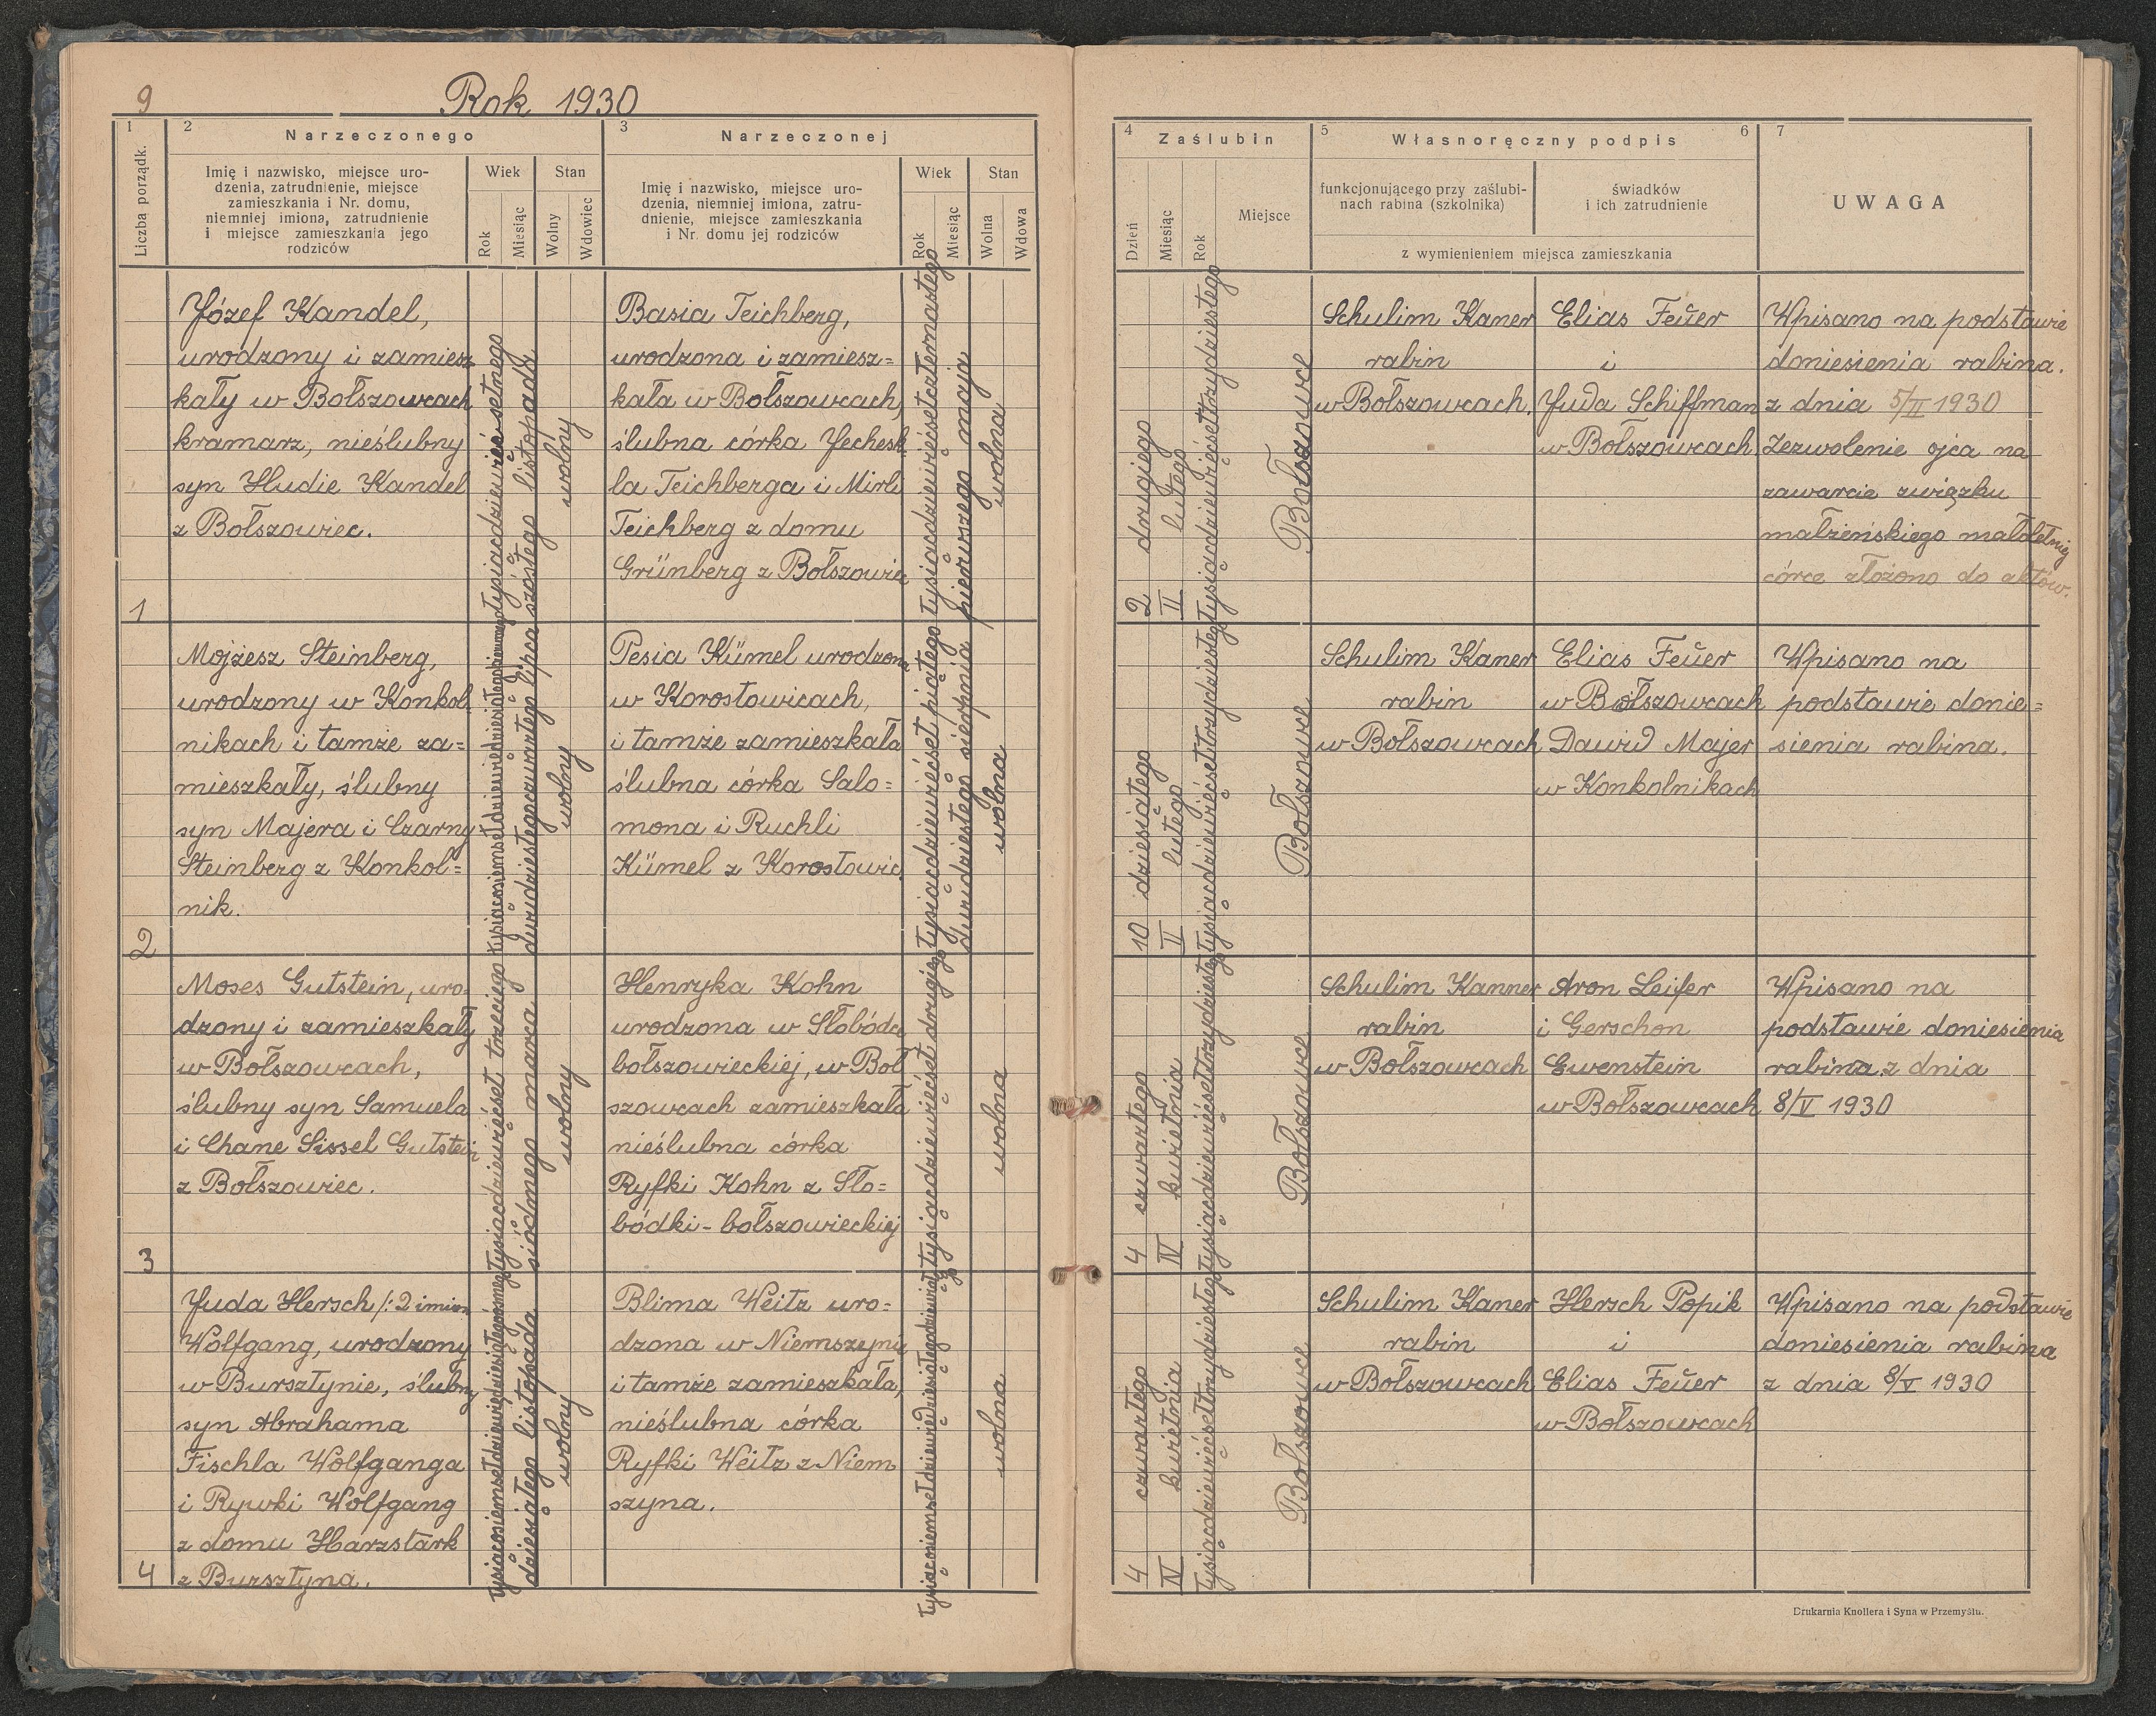 9
Rok 1930
1
2
Narzeczonego
3
Narzeczonej
Liczba porządk.
Imię i nazwisko, miejsce uro-
dzenia, zatrudnienie, miejsce
zamieszkania i Nr. domu,
niemniej imiona, zatrudnienie
i miejsce zamieszkania jego
rodziców
Wiek
Stan
Rok
Miesiąc
Wolny
Wdowiec
Imię i nazwisko, miejsce uro-
dzenia, niemniej imiona, zatru-
dnienie, miejsce zamieszkania
i Nr. domu jej rodziców
Wiek
Stan
Rok
Miesiąc
Wolna
Wdowa
4
Zaślubin
5
Własnoręczny podpis
6
7
Dzień
Miesiąc
Rok
Miejsce
funkcjonującego przy zaślubi-
nach rabina (szkolnika)
świadków
i ich zatrudnienie
z wymienieniem miejsca zamieszkania
UWAGA
1
Józef Kandel,
urodzony i zamiesz
kały w Bołszowcach
kramarz, nieślubny
syn Hudie Kandel
z Bołszowiec.
tysiącdziewięćsetnego
szóstego listopada
wolny
Basia Teichberg,
urodzona i zamiesz=
kała w Bołszowcach,
ślubna córka Jechesk
la Teichberga i Mirli
Teichberg z domu
Grünberg z Bołszowiec
tysiącdziewięćsetczternastego
pierwszego maja
wolna
2 drugiego
II lutego
tysiącdziewięćsettrzydziestego
Bołszowce
Schulim Kaner
rabin
w Bołszowcach.
Elias Feuer
i
Juda Schiffman
w Bołszowcach
Wpisano na podstawie
doniesienia rabina.
z dnia 5/II 1930
Zezwolenie ojca na
zawarcie związku
małżeńskiego małoletniej
córce złożono do aktów.
2
Mojżesz Steinberg,
urodzony w Konkol
nikach i tamże za=
mieszkały, ślubny
syn Majera i Czarny
Steinberg z Konkol=
nik.
dwudziestegoczwartego lipca
wolny
Pesia Kümel urodzona
w Korostowicach,
i tamże zamieszkała
ślubna córka Salo=
mona i Ruchli
Kümel z Korostowic
tysiącdziewięćset piątego
dwudziestego sierpnia
wolna
10 dziesiątego
II lutego
tysiącdziewięćsettrzydziestego
Bołszowce
Schulim Kaner
rabin
w Bołszowcach
Elias Feuer
w Bołszowcach
Dawid Majer
w Konkolnikach
Wpisano na
podstawie donie=
sienia rabina.
3
Moses Gutstein, uro=
dzony i zamieszkały
w Bołszowcach,
ślubny syn Samuela
i Chane Sissel Gutstein
z Bołszowiec.
tysiącdziewięćset trzeciego
siódmego marca
wolny
Henryka Kohn
urodzona w Słobódce
bołszowieckiej, w Boł
szowcach zamieszkała
nieślubna córka
Ryfki Kohn z Sło=
bódki-bołszowieckiej
tysiącdziewięćset drugiego
wolna
4 czwartego
IV kwietnia
tysiącdziewięćsettrzydziestego
Bołszowce
Schulim Kanner
rabin
w Bołszowcach
Aron Leifer
i Gerschon
Ewenstein
w Bołszowcach
Wpisano na
podstawie doniesienia
rabina z dnia
8/V 1930
4
Juda Hersch /:2 imion
Wolfgang, urodzony
w Bursztynie, ślubny
syn Abrahama
Fischla Wolfganga
i Rywki Wolfgang
z domu Harzstark
z Bursztyna.
tysiącosiemsetdziewięćdziesiątegoósmego
dziesiątego listopada
wolny
Blima Weitz uro=
dzona w Niemszynie
i tamże zamieszkała,
nieślubna córka
Ryfki Weitz z Niem
szyna.
tysiącosiemsetdziewięćdziesiątegodziewiątego
wolna
4 czwartego
IV kwietnia
tysiącdziewięćsettrzydziestego
Bołszowce
Schulim Kaner
rabin
w Bołszowcach
Hersch Popik
i
Elias Feuer
w Bołszowcach
Wpisano na podstawie
doniesienia rabina
z dnia 8/V 1930
Drukarnia Knollera i Syna w Przemyślu.